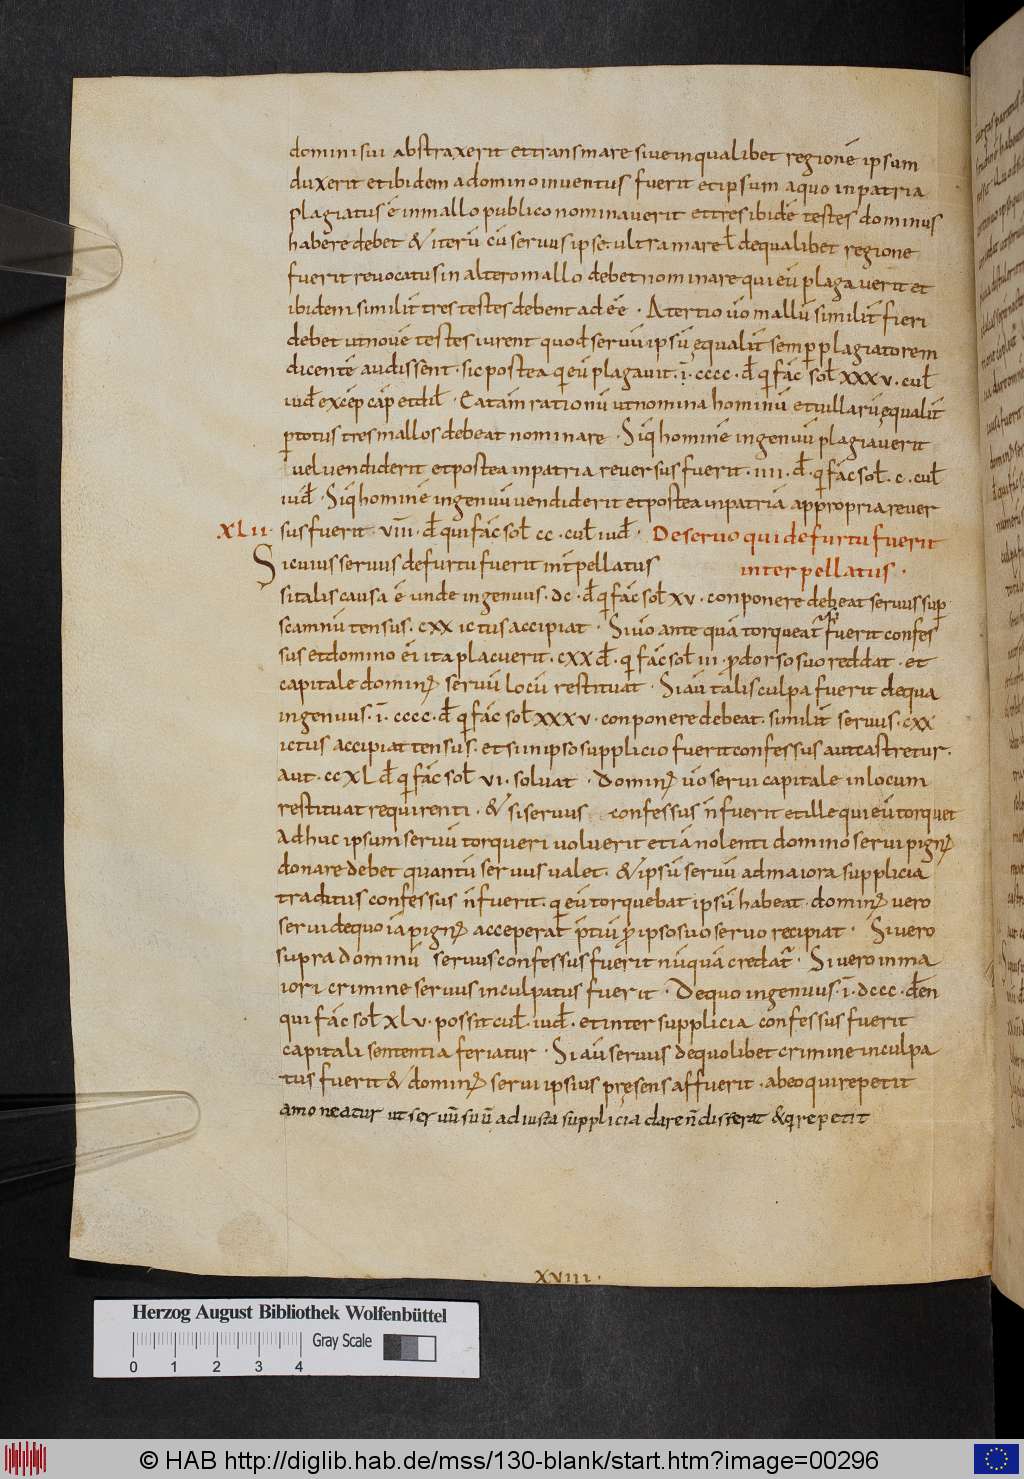 domini sui abstraxerit et trans mare siue in qualibet regionē ipsum
duxerit et ibidem a domino inuentus fuerit et ipsum a quo in patria
plagiatus ē in mallo publico nominauerit et tres ibidē testes dominus
habere debet & iterū cū seruus ipse ultra mare ł de qualibet regione
fuerit reuocatus in altero mallo debet nominare qui eū plagauerit et
ibidem similiť tres testes debent ad eē · A tertio ūo mallū similiť fieri
debet ut nouē testes iurent quod seruū ipsū ęqualiť semꝑ plagiatorem
dicentē audissent · sic postea q̄ eū plagauit · ī · cccc · đ q̄ fac̄ soł xxxv · cuł
iuđ excēp cāp et dił · Eatam rationū ut nomina hominū et uillarū ęqualiť
ꝑ totus tres mallos debeat nominare · Siq̄ hominē ingenuū plagiauerit
uel uendiderit et postea in patria reuersus fuerit · iiii · đ · q̄ fac̄ soł · c · cuł
iuđ · Siq̄ hominē ingenuū uendiderit et postea in patriā appropria reuer
XLII · sus fuerit · viii · đ qui fac̄ soł cc · cuł iuđ · De seruo qui de furtu fuerit
Si cuius seruus de furtu fuerit int̄pellatus interpellatus ·
si talis causa ē unde ingenuus · dc · đ q̄ fac̄ soł xv · conponere debeat seruus suꝑ
scamnū tensus · cxx ictus accipiat · Si ūo ante quā torqueat᷑ fuerit confes
sus et domino ēi ita placuerit · cxx đ · q̄ fac̄ soł iii · ꝓ dorso suo reddat · et
capitale dominꝰ seruū locū restituat · Si aū talis culpa fuerit de qua
ingenuus · ī · cccc · đ q̄ fac̄ soł xxxv · conponere debeat · similiť seruus · cxx
ictus accipiat tensus · et si in ipso supplicio fuerit confessus aut castretur ·
aut · ccxl đ q̄ fac̄ soł vi · soluat · Dominꝰ ūo serui capitale in locum
restituat requirenti · & si seruus confessus n̄ fuerit et ille qui eū torquet
adhuc ipsum seruū torqueri uoluerit etiā nolenti domino serui pignꝰ
donare debet quantū seruus ualet · & ipsū seruū ad maiora supplicia
traditus confessus n̄ fuerit · q̄ eū torquebat ipsū habeat · dominꝰ uero
serui de quo iā pignꝰ acceperat p̄tiū ꝓ ipso suo seruo recipiat · Si uero
supra dominū seruus confessus fuerit nūquā credat᷑ · Si uero in ma
iori crimine seruus inculpatus fuerit · De quo ingenuus · ī · dccc · đen
qui fac̄ soł xlv · possit cuł · iuđ · et inter supplicia confessus fuerit
capitali sententia feriatur · Si aū seruus de quolibet crimine inculpa
tus fuerit & dominꝰ serui ipsius pręsens affuerit · ab eo qui repetit
amoneatur ut seruū suū ad iusta supplicia dare n̄ differat & q̄ repetit
xviii ·
Herzog August Bibliothek Wolfenbüttel
Gray Scale
0 1 2 3 4
© HAB http://diglib.hab.de/mss/130-blank/start.htm?image=00296